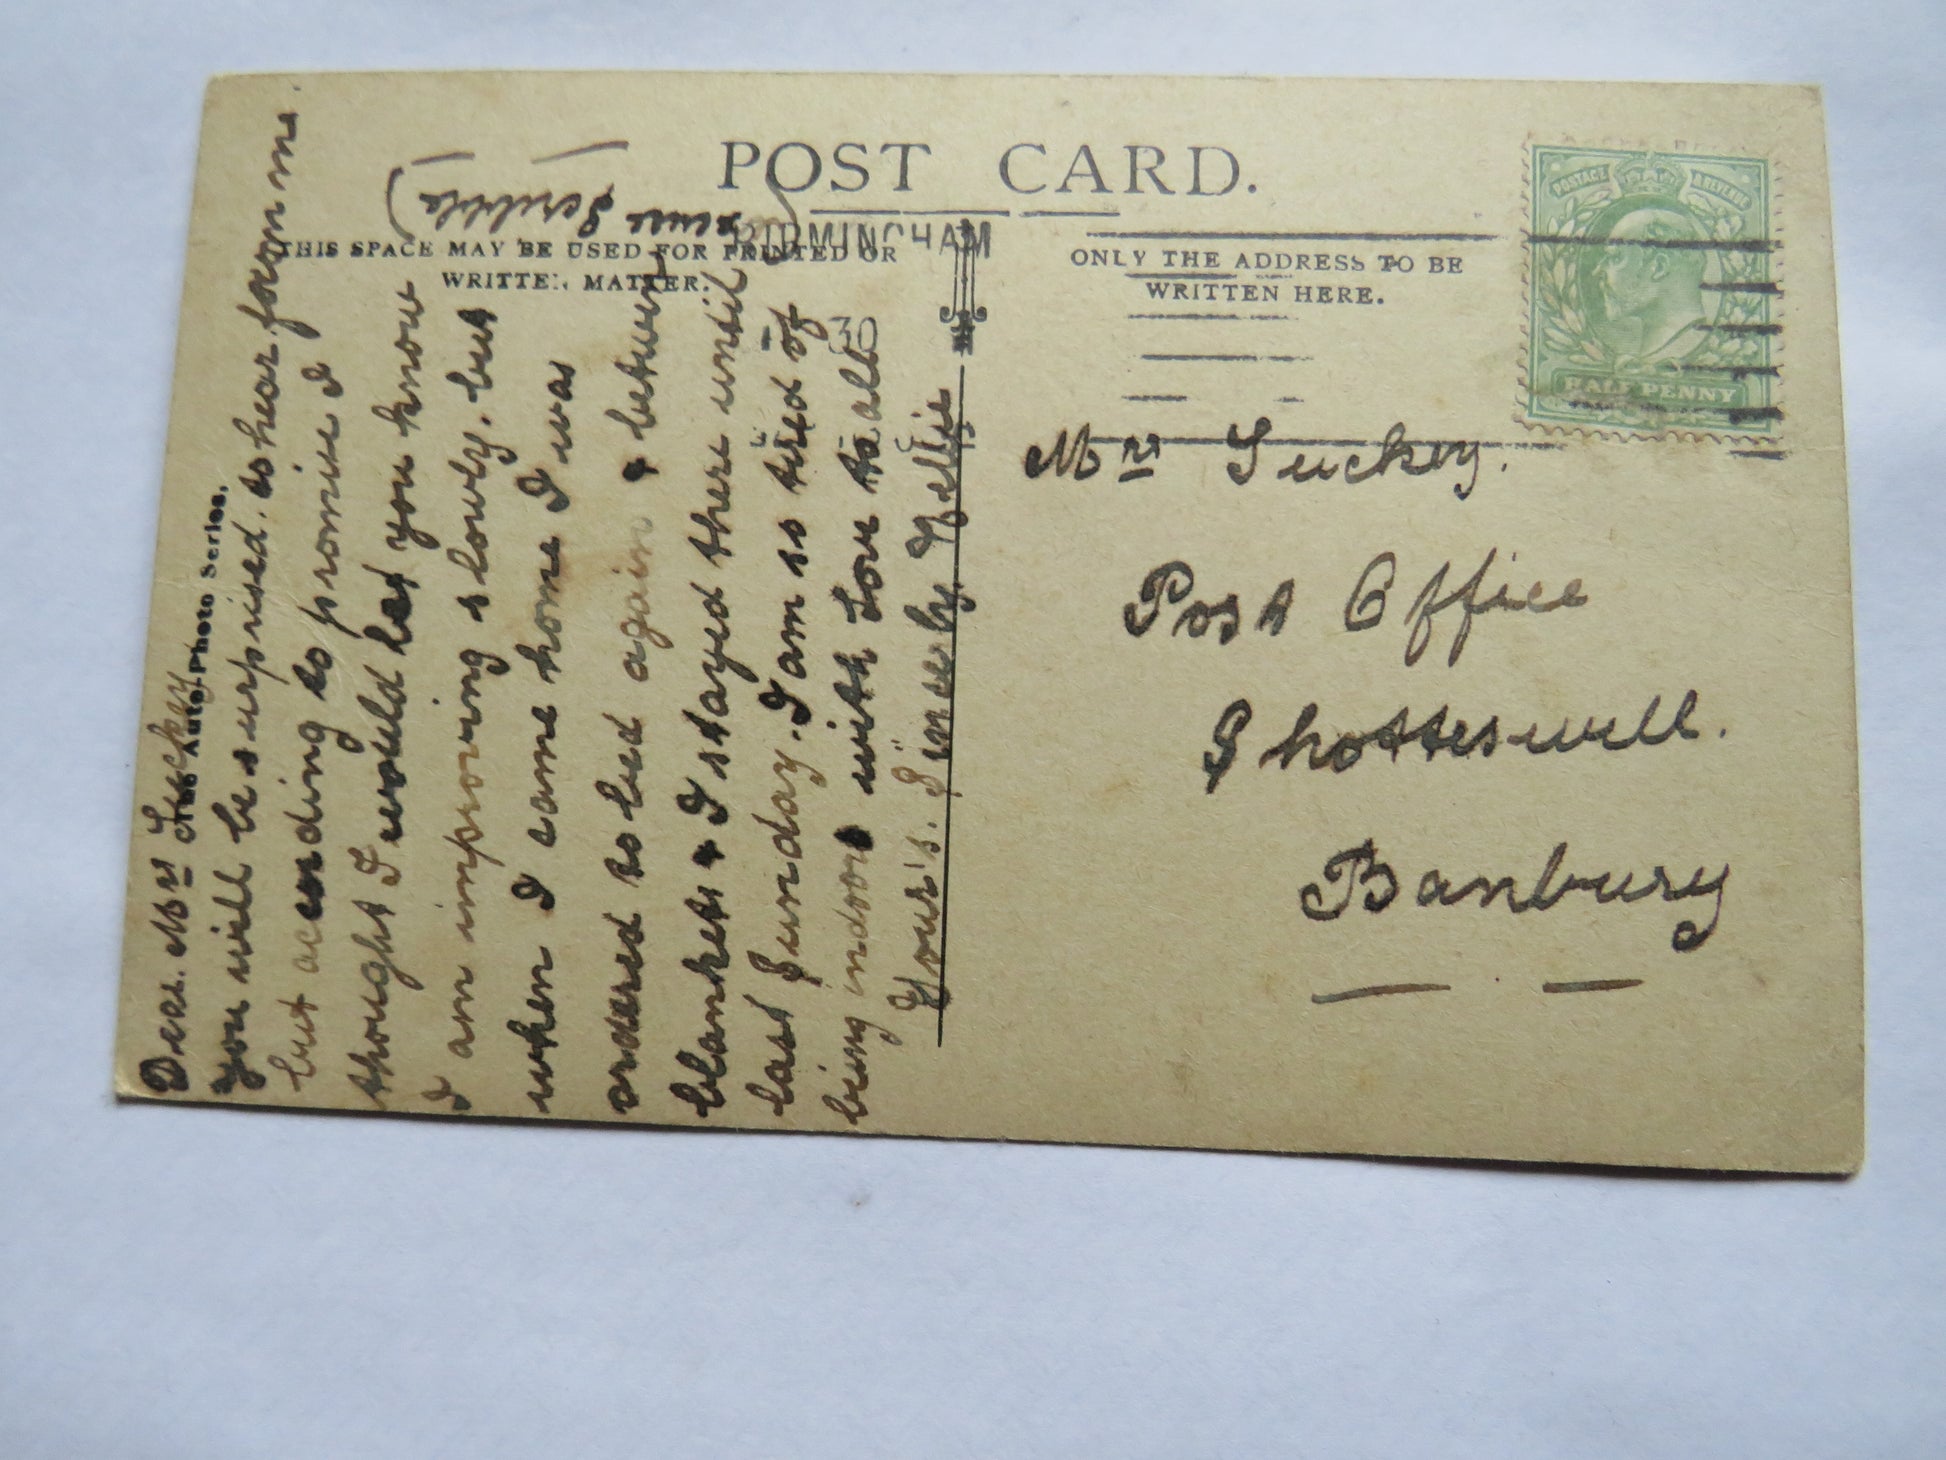 POST CARD.
BIRMINGHAM
30
THIS SPACE MAY BE USED FOR PRINTED OR
WRITTEN MATTER.
ONLY THE ADDRESS TO BE
WRITTEN HERE.
POSTAGE REVENUE
HALF PENNY
Auto-Photo Series.
Dear. Mrs Tuckey
You will be surprised. to hear from me.
but according to promise I
thought I would let you know
I am improving slowly. but
when I came home I was
ordered to bed again & between
blankets & I stayed there until
last Sunday. I am so tired of
being indoors with Love to all
Your's. Sincerly. Nellie
Scribble
Mrs Tuckey.
Post Office
Shotteswell.
Banbury